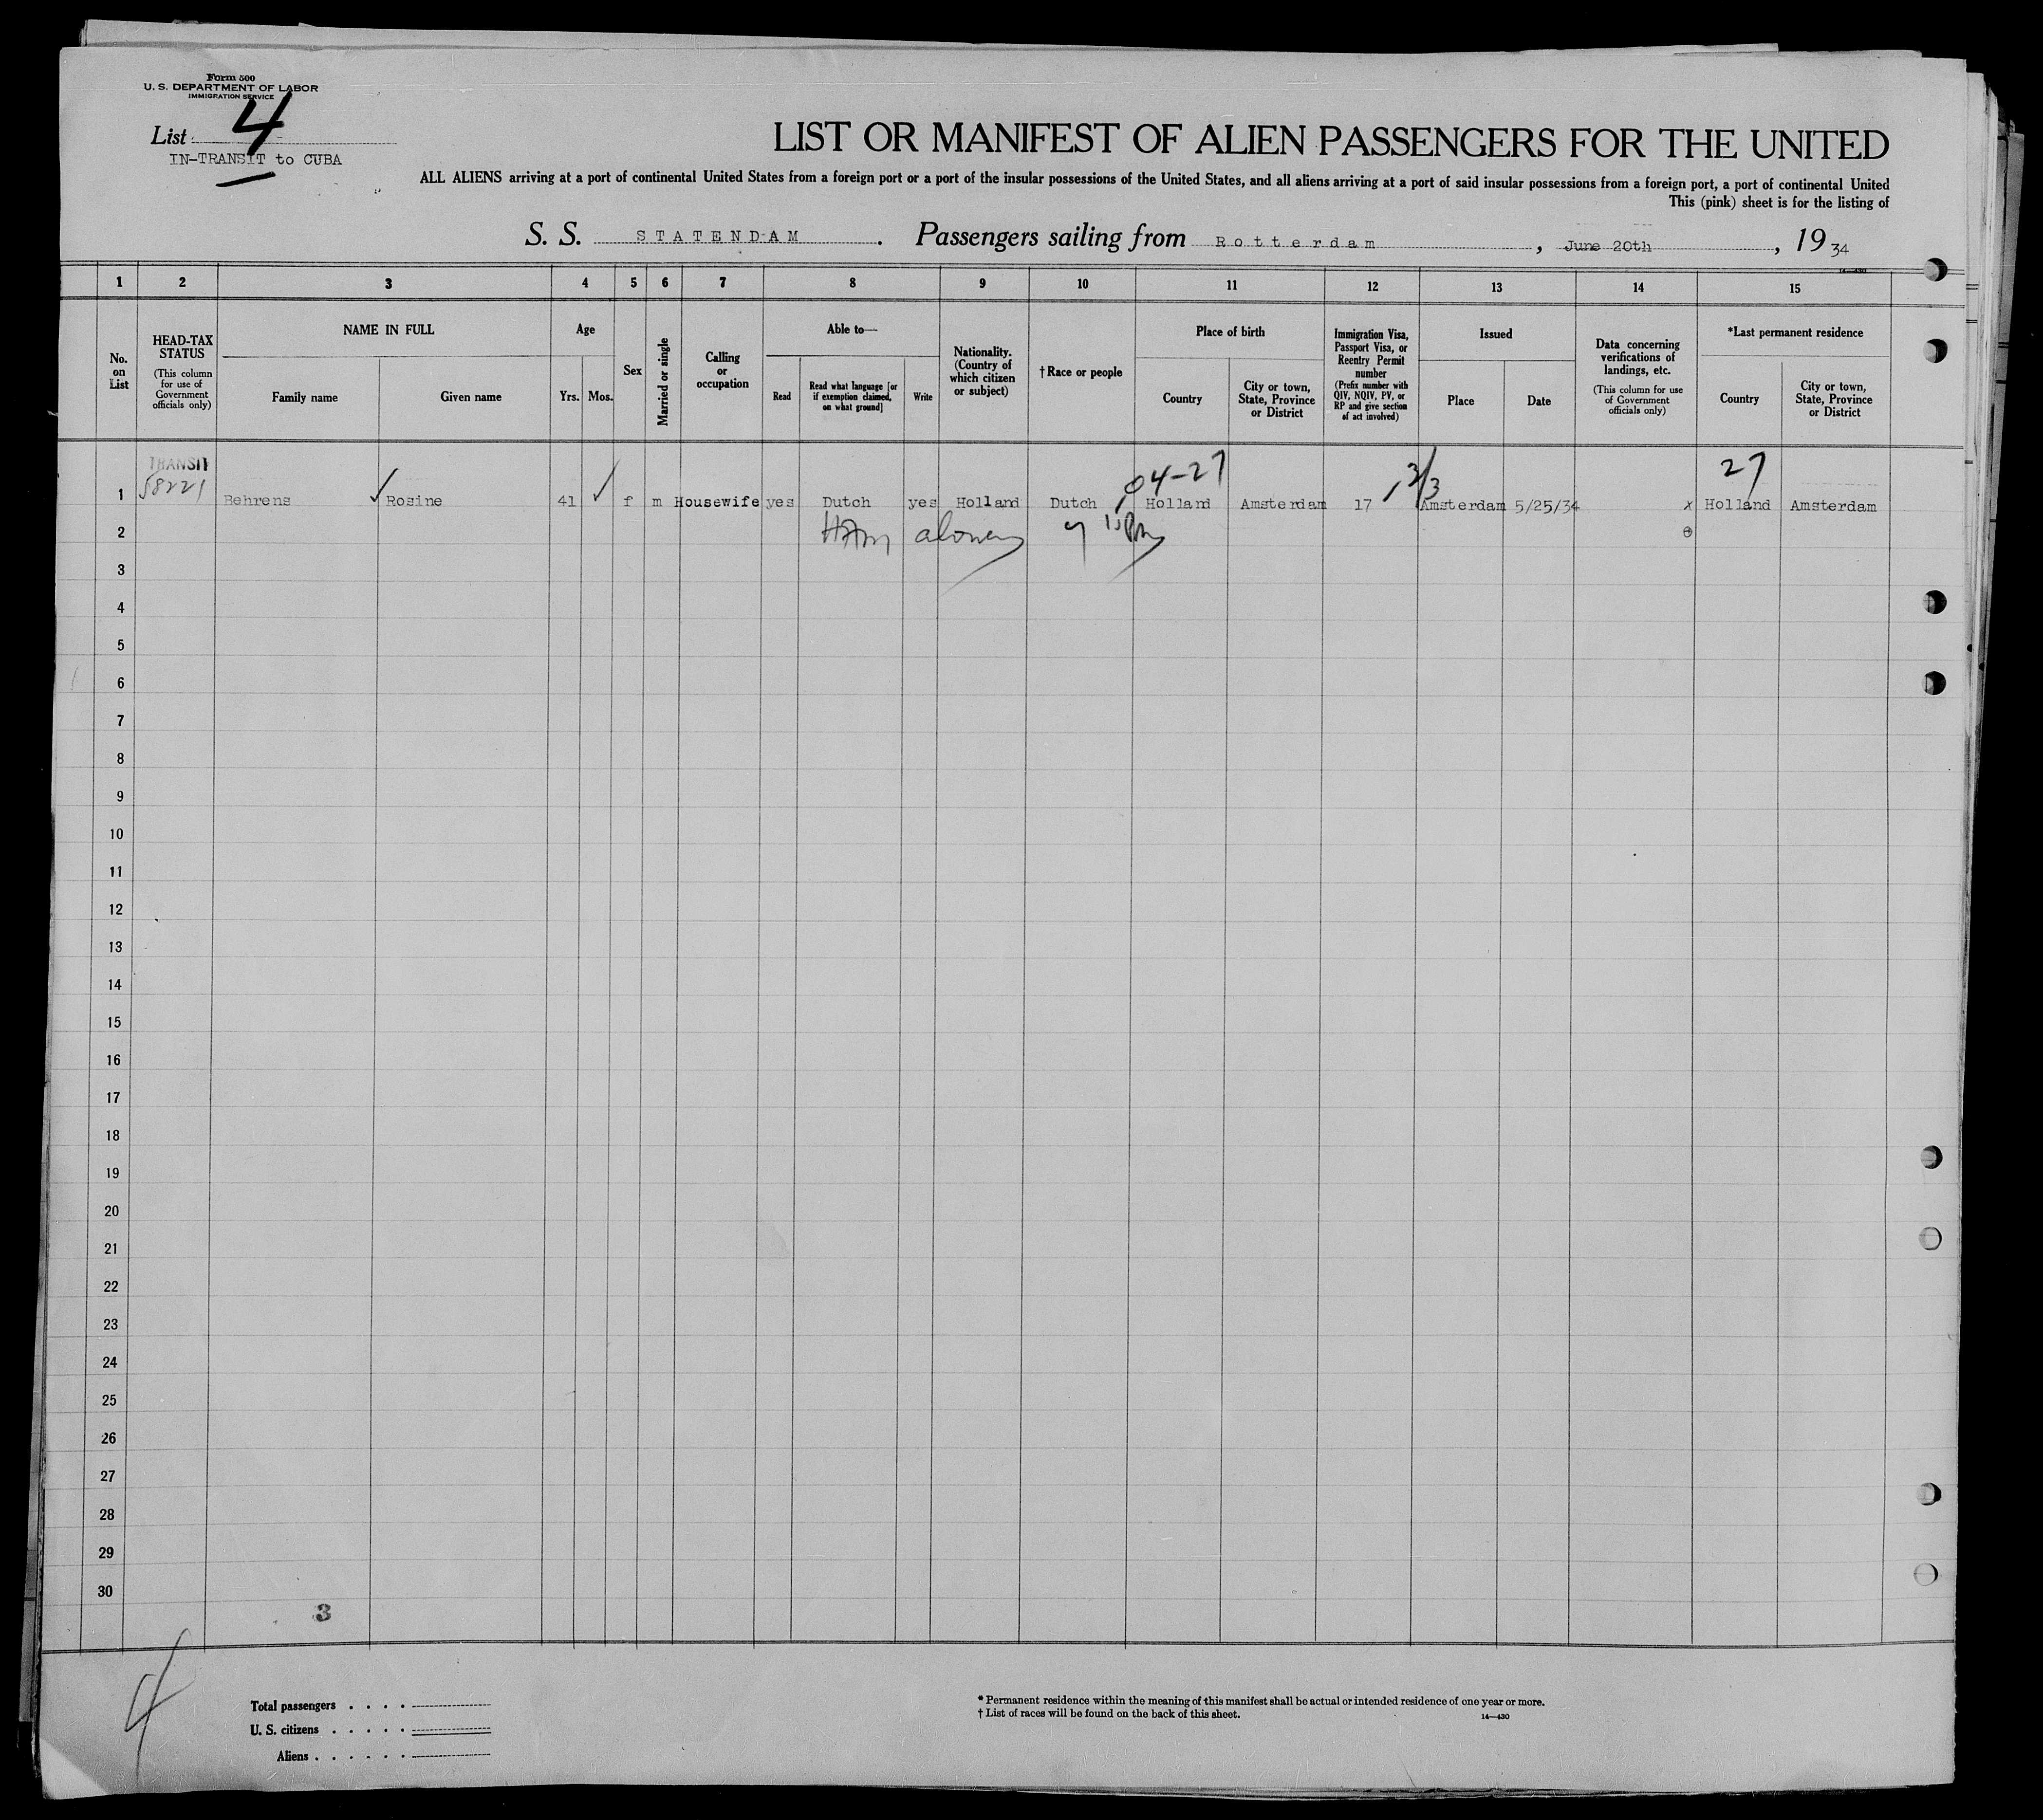 Form 500
U. S. DEPARTMENT OF LABOR
IMMIGRATION SERVICE
List 4
IN-TRANSIT to CUBA
LIST OR MANIFEST OF ALIEN PASSENGERS FOR THE UNITED
ALL ALIENS arriving at a port of continental United States from a foreign port or a port of the insular possessions of the United States, and all aliens arriving at a port of said insular possessions from a foreign port, a port of continental United
This (pink) sheet is for the listing of
S. S. STATENDAM. Passengers sailing from Rotterdam, June 20th, 1934
14—430
1 2 3 4 5 6 7 8 9 10 11 12 13 14 15
No. on List
HEAD-TAX STATUS
(This column for use of Government officials only)
NAME IN FULL
Family name
Given name
Age
Yrs.
Mos.
Sex
Married or single
Calling or occupation
Able to—
Read
Read what language [or if exemption claimed, on what ground]
Write
Nationality. (Country of which citizen or subject)
†Race or people
Place of birth
Country
City or town, State, Province or District
Immigration Visa, Passport Visa, or Reentry Permit number
(Prefix number with QIV, NQIV, PV, or RP and give section of act involved)
Issued
Place
Date
Data concerning verifications of landings, etc.
(This column for use of Government officials only)
*Last permanent residence
Country
City or town, State, Province or District
TRANSIT
58221
04-27
27
1 Behrens Rosine 41 f m Housewife yes Dutch yes Holland Dutch Holland Amsterdam 17 Amsterdam 5/25/34 x Holland Amsterdam
2
3
4
5
6
7
8
9
10
11
12
13
14
15
16
17
18
19
20
21
22
23
24
25
26
27
28
29
30
3
4
Total passengers . . . .
U. S. citizens . . . . .
Aliens . . . . . .
* Permanent residence within the meaning of this manifest shall be actual or intended residence of one year or more.
† List of races will be found on the back of this sheet.
14—430